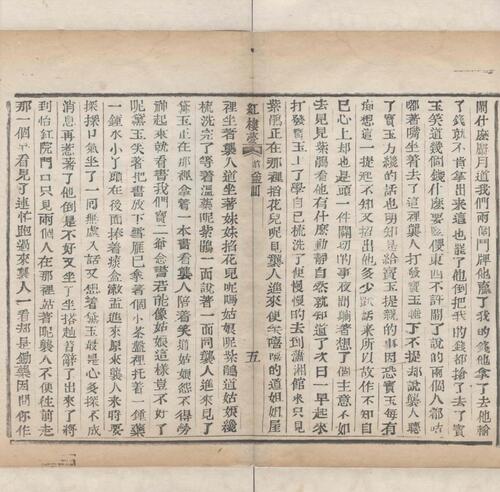 鬧什麼麝月道我們兩個鬥牌他贏了我的錢他拿了去他輸
了錢就不肯拿出來這也罷了他倒把我的錢都搶了去了寶
玉笑道幾個錢什麼要緊傻東西不許鬧了說的兩個人都咕
嘟著嘴坐著去了這裡襲人打發寶玉睡下不提却說襲人聽
了寶玉方纔的話也明知是給寶玉提親的事因恐寶玉每有
痴想這一提起不知又招出他多少獃話來所以故作不知自
已心上却也是頭一件關切的事夜間躺著想了個主意不如
去見見紫鵑看他有什麼動靜自然就知道了次日一早起來
打發寶玉上了學自已梳洗了便慢慢的去到瀟湘館來只見
紫鵑正在那裡掐花兒呢見襲人進來便笑嘻嘻的道姐姐屋
紅樓夢
五
裡坐著襲人道坐著妹妹掐花兒呢嗎姑娘呢紫鵑道姑娘纔
梳洗完了等著溫藥呢紫鵑一面說著一面同襲人進來見了
黛玉正在那裡拿着一本書看襲人陪着笑道姑娘怨不得勞
神起來就看書我們寶二爺念書若能像姑娘這樣豈不好了
呢黛玉笑著把書放下雪雁已拿著個小茶盤裡托着一鍾藥
一鍾水小丫頭在後面捧着痰盒漱盂進來原來襲人來時要
探探口氣坐了一回無處入話又想着黛玉最是心多探不成
消息再惹著了他倒是不好又坐了坐搭趄着辭了出來了將
到怡紅院門口只見兩個人在那裡站著呢襲人不便往前走
那一個早看見了連忙跑過來襲人一看却是鋤藥因問你作